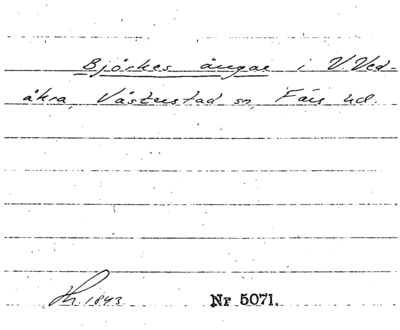 Björkes ängar i V. Ved-
åkra, Västerstad sn, Färs hd.
Hh. 1843 Nr 5071.